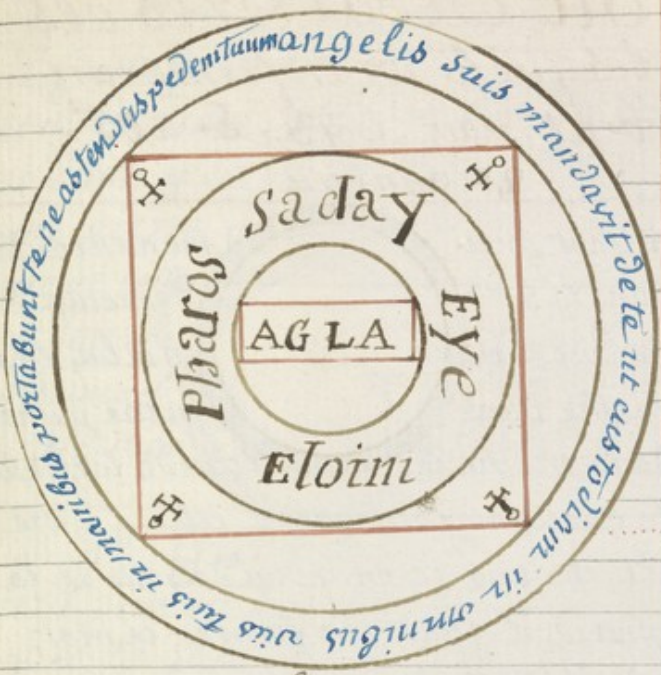 angelis suis mandavit de te ut custodiam in omnibus viis tuis in manibus portabunt te neastendas pedemtuum
Saday
Eye
Eloim
Pharos
AGLA